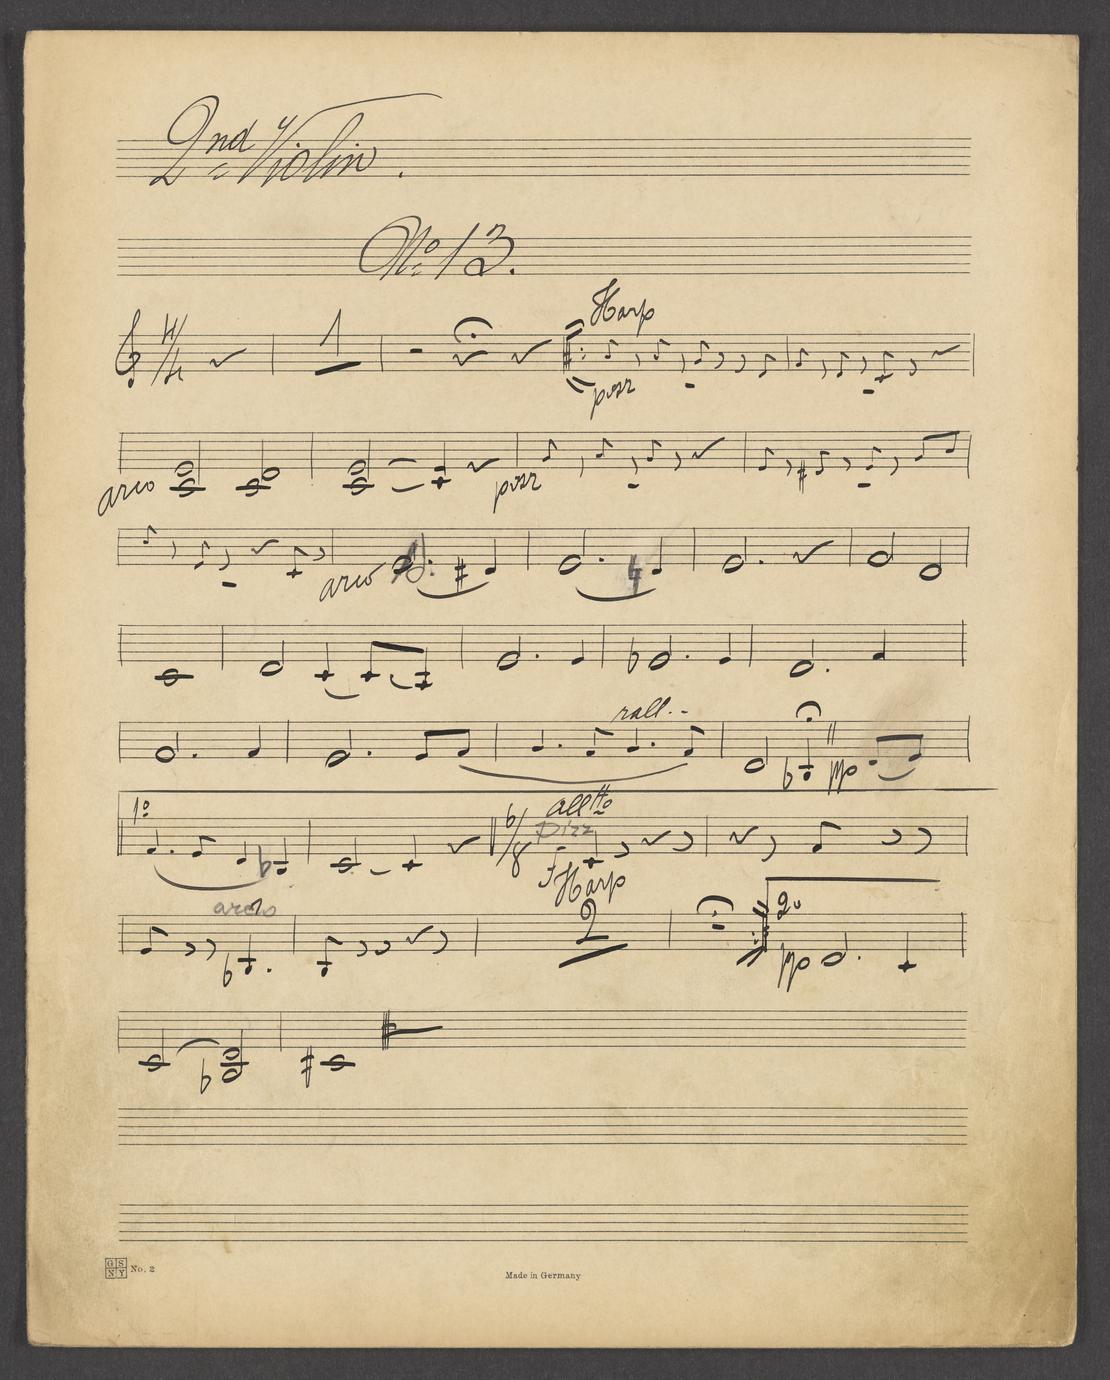 2nd Violin.
No 13.
4/4 1 Harp
pizz
arco pizz
arco
rall.
pp
1o 6/8 alltto
pizz
f Harp
arco
2 2o
pp
GS NY No. 2
Made in Germany